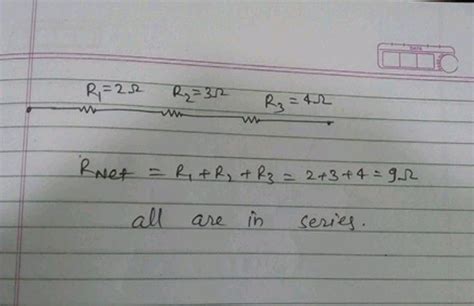 R₁=2Ω R₂=3Ω R₃=4Ω
R_Net = R₁+R₂+R₃ = 2+3+4 = 9Ω
all are in series.